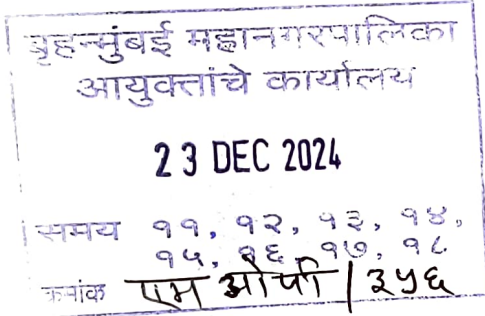 बृहन्मुंबई महानगरपालिका
आयुक्तांचे कार्यालय
23 DEC 2024
समय ११, १२, १३, १४,
१५, १६, १७, १८
क्रमांक एम ओपी / ३५६